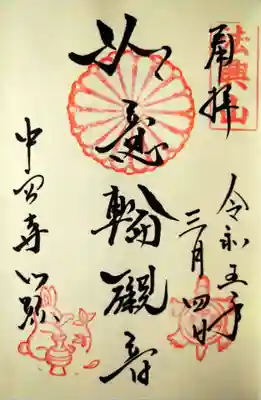 法興山
奉拝
令和五年
三月四日
如意輪觀音
中宮寺門跡